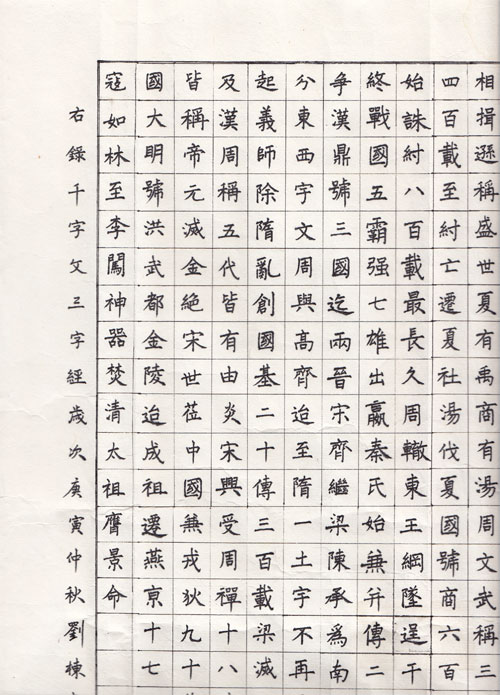 相揖遜稱盛世夏有禹商有湯周文武稱三
四百載至紂亡遷夏社湯伐夏國號商六百
始誅紂八百載最長久周轍東王綱墜逞干
終戰國五霸强七雄出嬴秦氏始兼并傳二
爭漢鼎號三國迄兩晉宋齊繼梁陳承爲南
兮東西宇文周與高齊迨至隋一土宇不再
起義師除隋亂創國基二十傳三百載梁滅
及漢周稱五代皆有由炎宋興受周禪十八
皆稱帝元滅金絕宋世莅中國兼戎狄九十
國大明號洪武都金陵迨成祖遷燕京十七
寇如林至李闖神器焚清太祖膺景命
右錄千字文三字經歲次庚寅仲秋劉棟